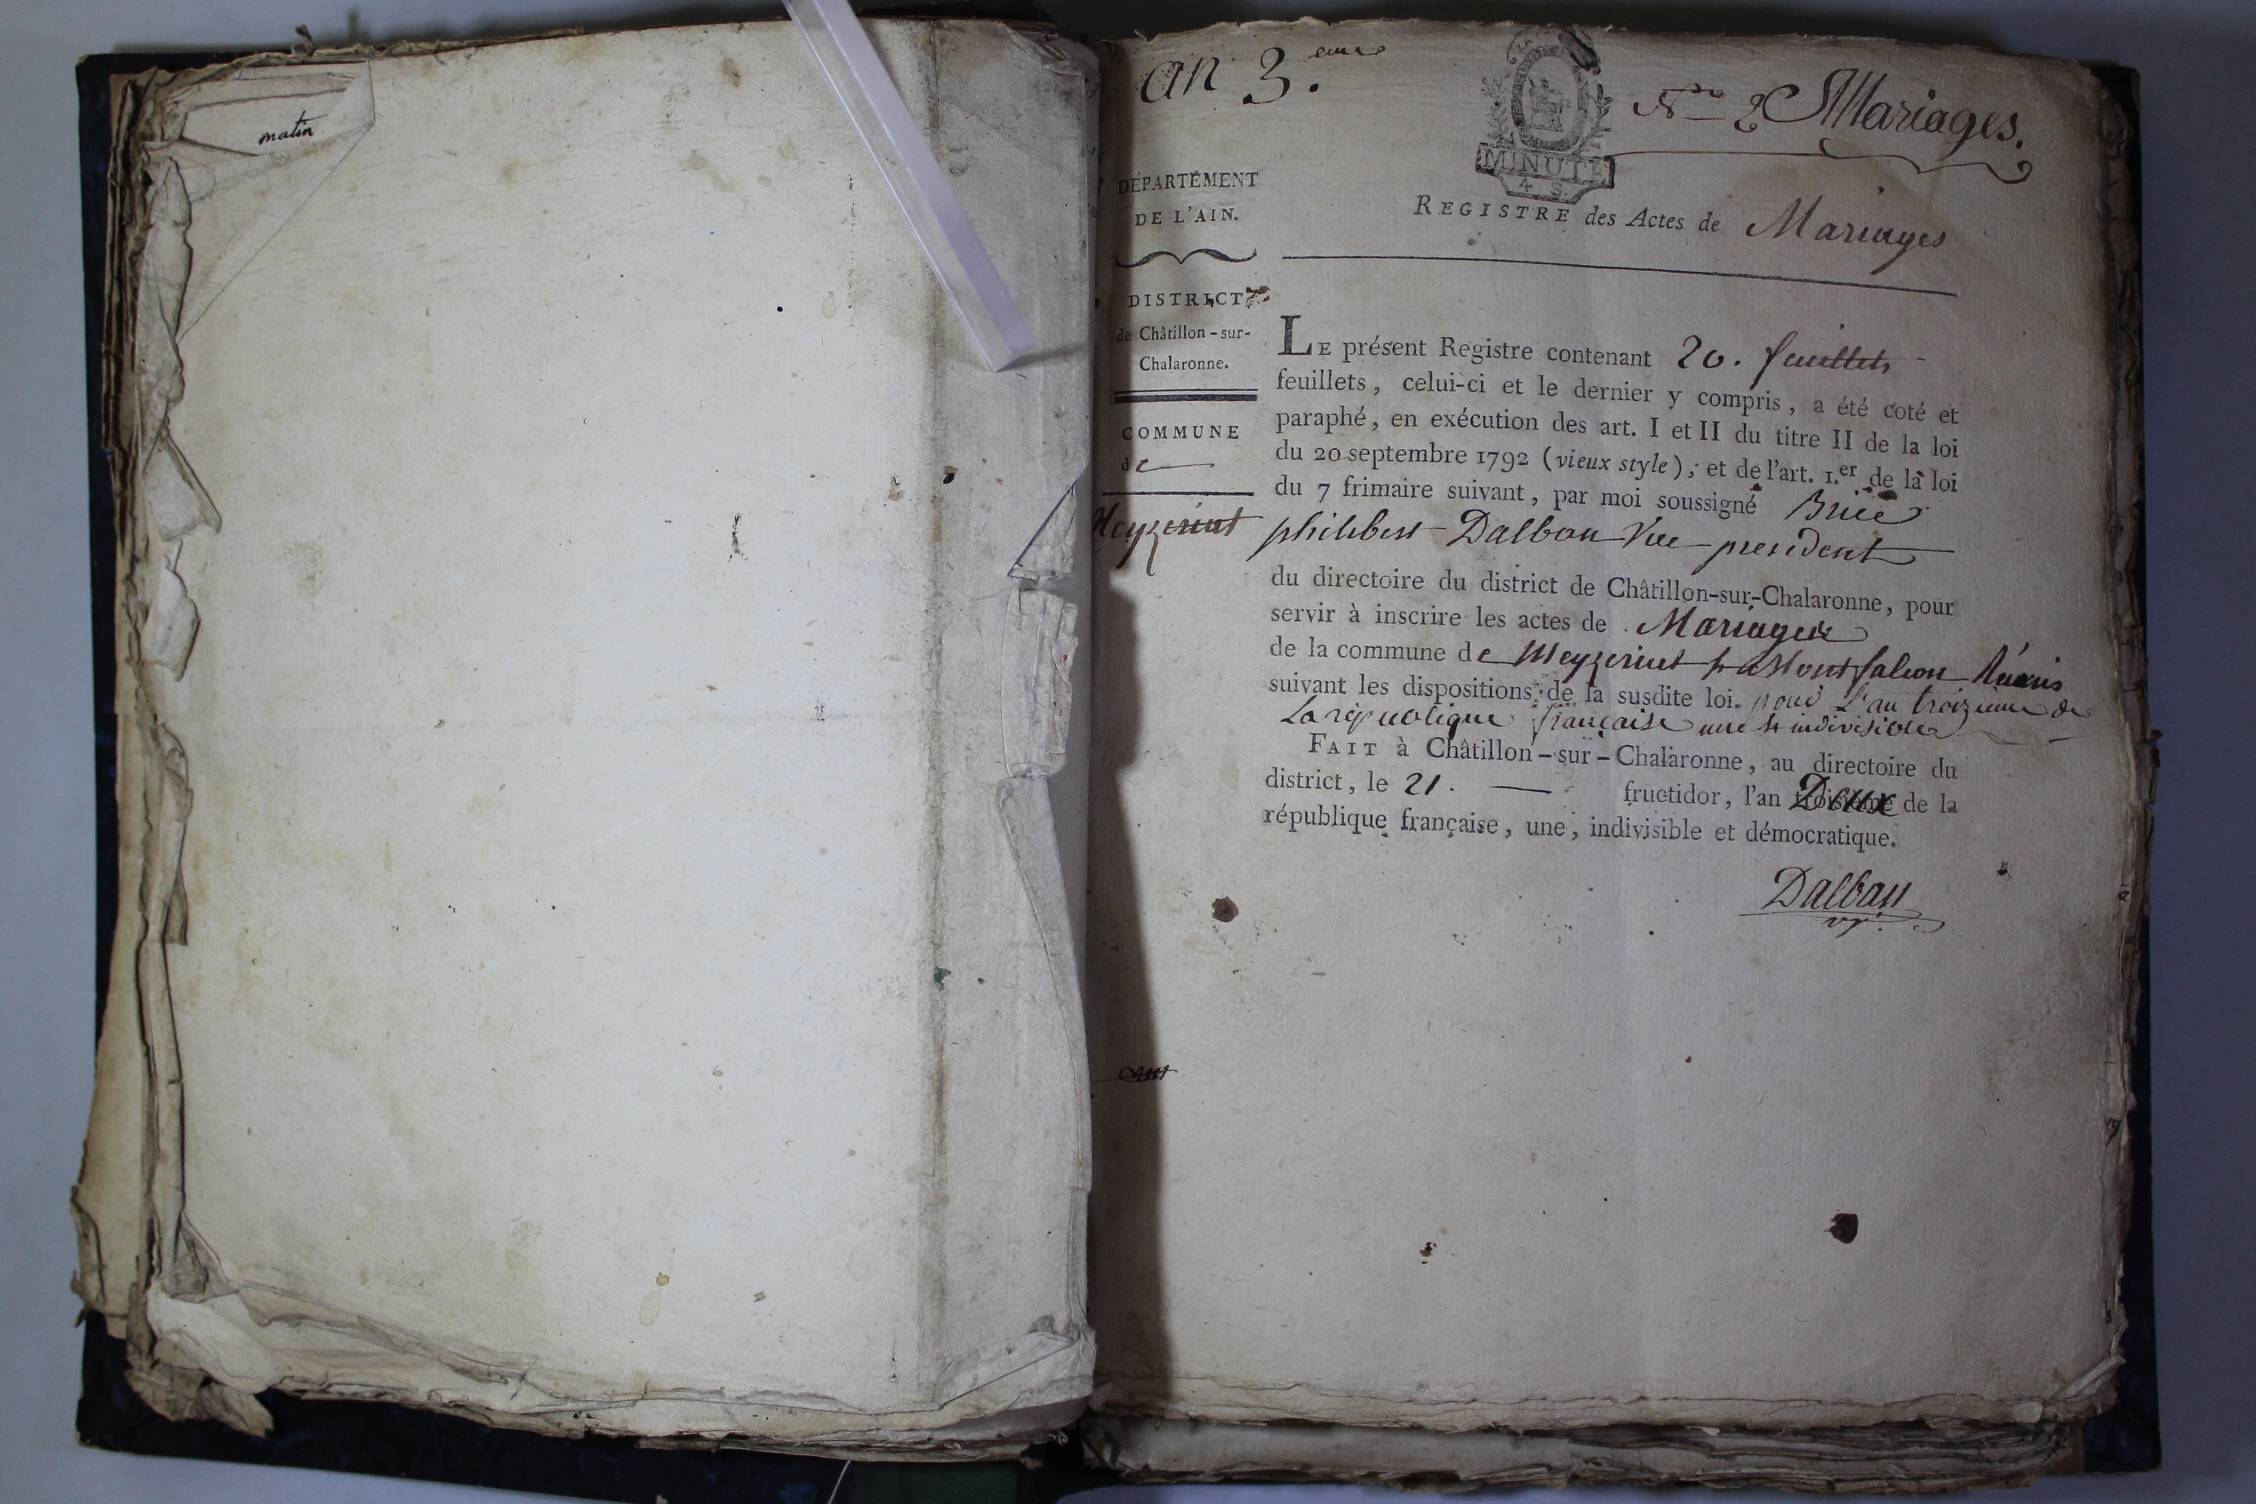 matin
an 3.eme
Nro 2 Mariages.
MINUTE
4 S.
DÉPARTEMENT
DE L'AIN.
REGISTRE des Actes de Mariages
DISTRICT
de Châtillon-sur-
Chalaronne.
COMMUNE
de
Meyzeriat
LE présent Registre contenant 20. feuillets
feuillets, celui-ci et le dernier y compris, a été coté et
paraphé, en exécution des art. I et II du titre II de la loi
du 20 septembre 1792 (vieux style), et de l'art. 1.er de la loi
du 7 frimaire suivant, par moi soussigné Brice
philibert Dalban Vice president
du directoire du district de Châtillon-sur-Chalaronne, pour
servir à inscrire les actes de Mariages
de la commune de Meyzeriat & Montfalcon Réunis
suivant les dispositions de la susdite loi. pour L'an troizieme de
La republique française une & indivisible
FAIT à Châtillon-sur-Chalaronne, au directoire du
district, le 21. fructidor, l'an Deux de la
république française, une, indivisible et démocratique.
Dalban
vp.